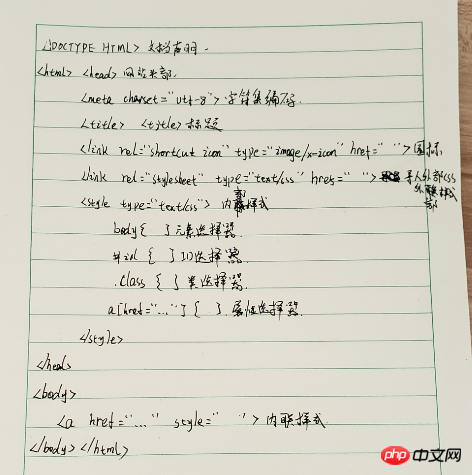 <!DOCTYPE HTML> 文档声明.
<html> <head> 网站头部.
<meta charset="utf-8"> 字符集编码.
<title> <title> 标题
<link rel="shortcut icon" type="image/x-icon" href=" "> 图标
<link rel="stylesheet" type="text/css" href=" "> 导入外部CSS
外联样式
部
部
<style type="text/css"> 内联样式
body{ } 元素选择器.
#id { } ID选择器.
.class { } 类选择器.
a[href="..."] { } 属性选择器.
</style>
</head>
<body>
<a href="..." style=" "> 内联样式.
</body> </html>
php 中文网